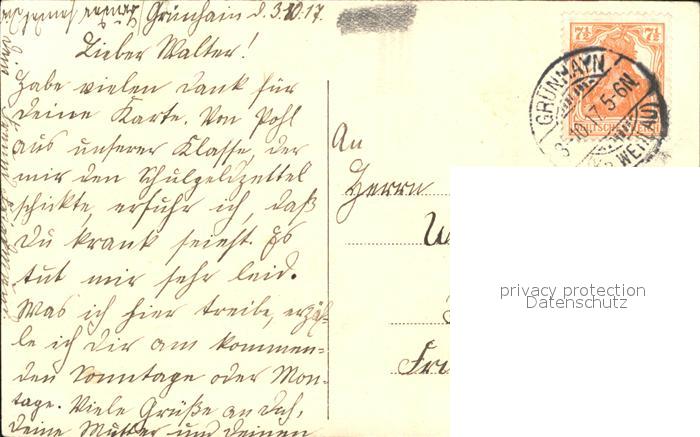 Grünhain d. 3.10.17.
Lieber Walter!
Habe vielen Dank für
deine Karte. Von Pohl
aus unserer Klasse, der
mir den Schulgeldzettel
schickte, erfuhr ich, daß
Du krank seiest. Es
tut mir sehr leid.
Was ich hier treibe, erzäh-
le ich Dir am kommen=
den Sonntage oder Mon-
tage. Viele Grüße an Dich,
deine Mutter und deinen
An
Herrn
W
Fri
7½ 7½
DEUTSCHES REICH
GRÜNHAYN
3.10.17. 5-6N.
(KR. WEHLAU)
privacy protection
Datenschutz